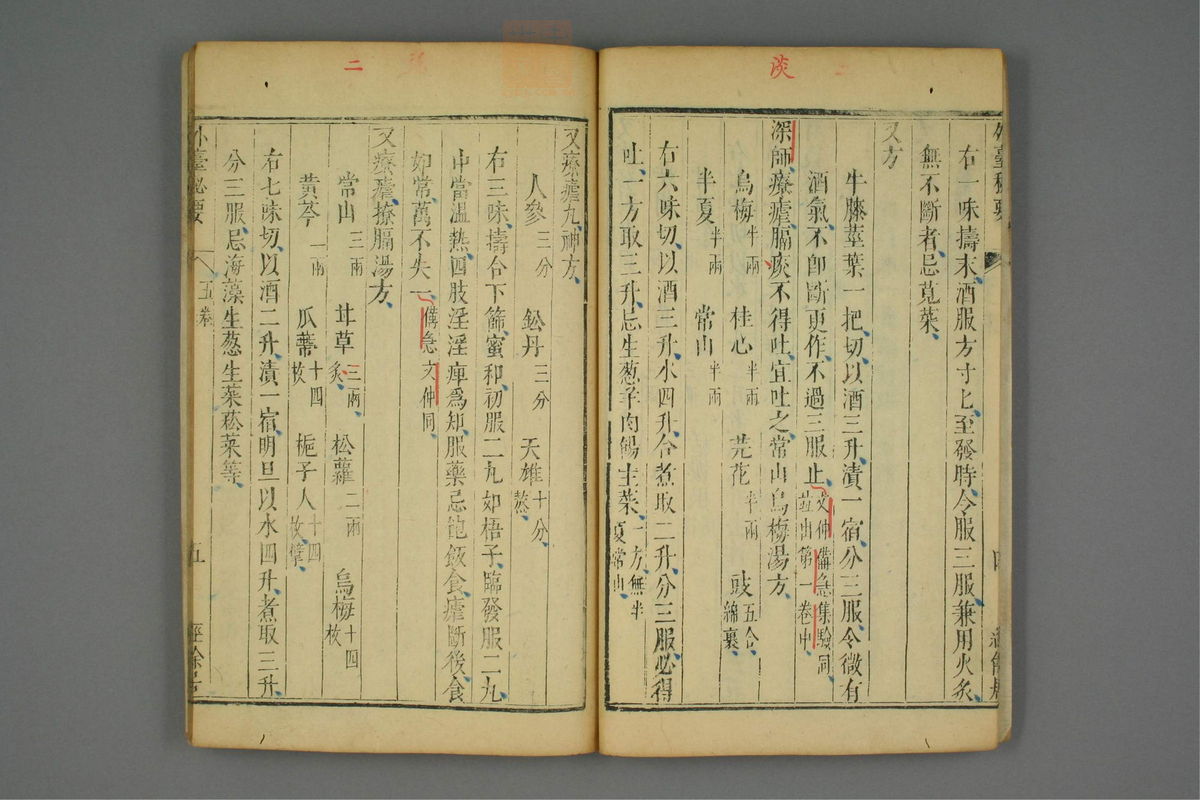 淡
外臺秘要
右一味擣末酒服方寸匕至發時令服三服兼用火炙
無不斷者忌莧菜
又方
牛膝莖葉一把切以酒三升漬一宿分三服令微有
酒氣不卽斷更作不過三服止文仲備急集驗同
並出第一卷中
深師療瘧膈痰不得吐宜吐之常山烏梅湯方
烏梅半兩 桂心半兩 芫花半兩 豉五合綿裹
半夏半兩 常山半兩
右六味切以酒三升水四升合煮取二升分三服必得
吐一方取三升忌生葱羊肉餳生菜一方無半
夏常山
二
又療瘧丸神方
人參三分 鈆丹三分 天雄十分熬
右三味擣合下篩蜜和初服二丸如梧子臨發服二丸
中當溫熱四肢淫淫痺爲知服藥忌飽飯食瘧斷後食
如常萬不失一備急文仲同
又療瘧撩膈湯方
常山三兩 甘草三兩炙 松蘿二兩 烏梅十四枚
黃芩一兩 瓜蔕十四枚 梔子人十四枚擘
右七味切以酒二升漬一宿明旦以水四升煮取三升
分三服忌海藻生葱生菜菘菜等
外臺秘要 五卷 五 經餘居